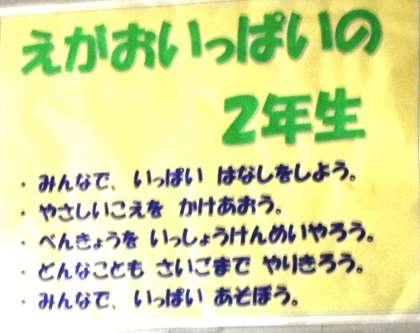 えがおいっぱいの
2年生
・みんなで、いっぱい はなしをしよう。
・やさしいこえを かけあおう。
・べんきょうを いっしょうけんめいやろう。
・どんなことも さいごまで やりきろう。
・みんなで、いっぱい あそぼう。